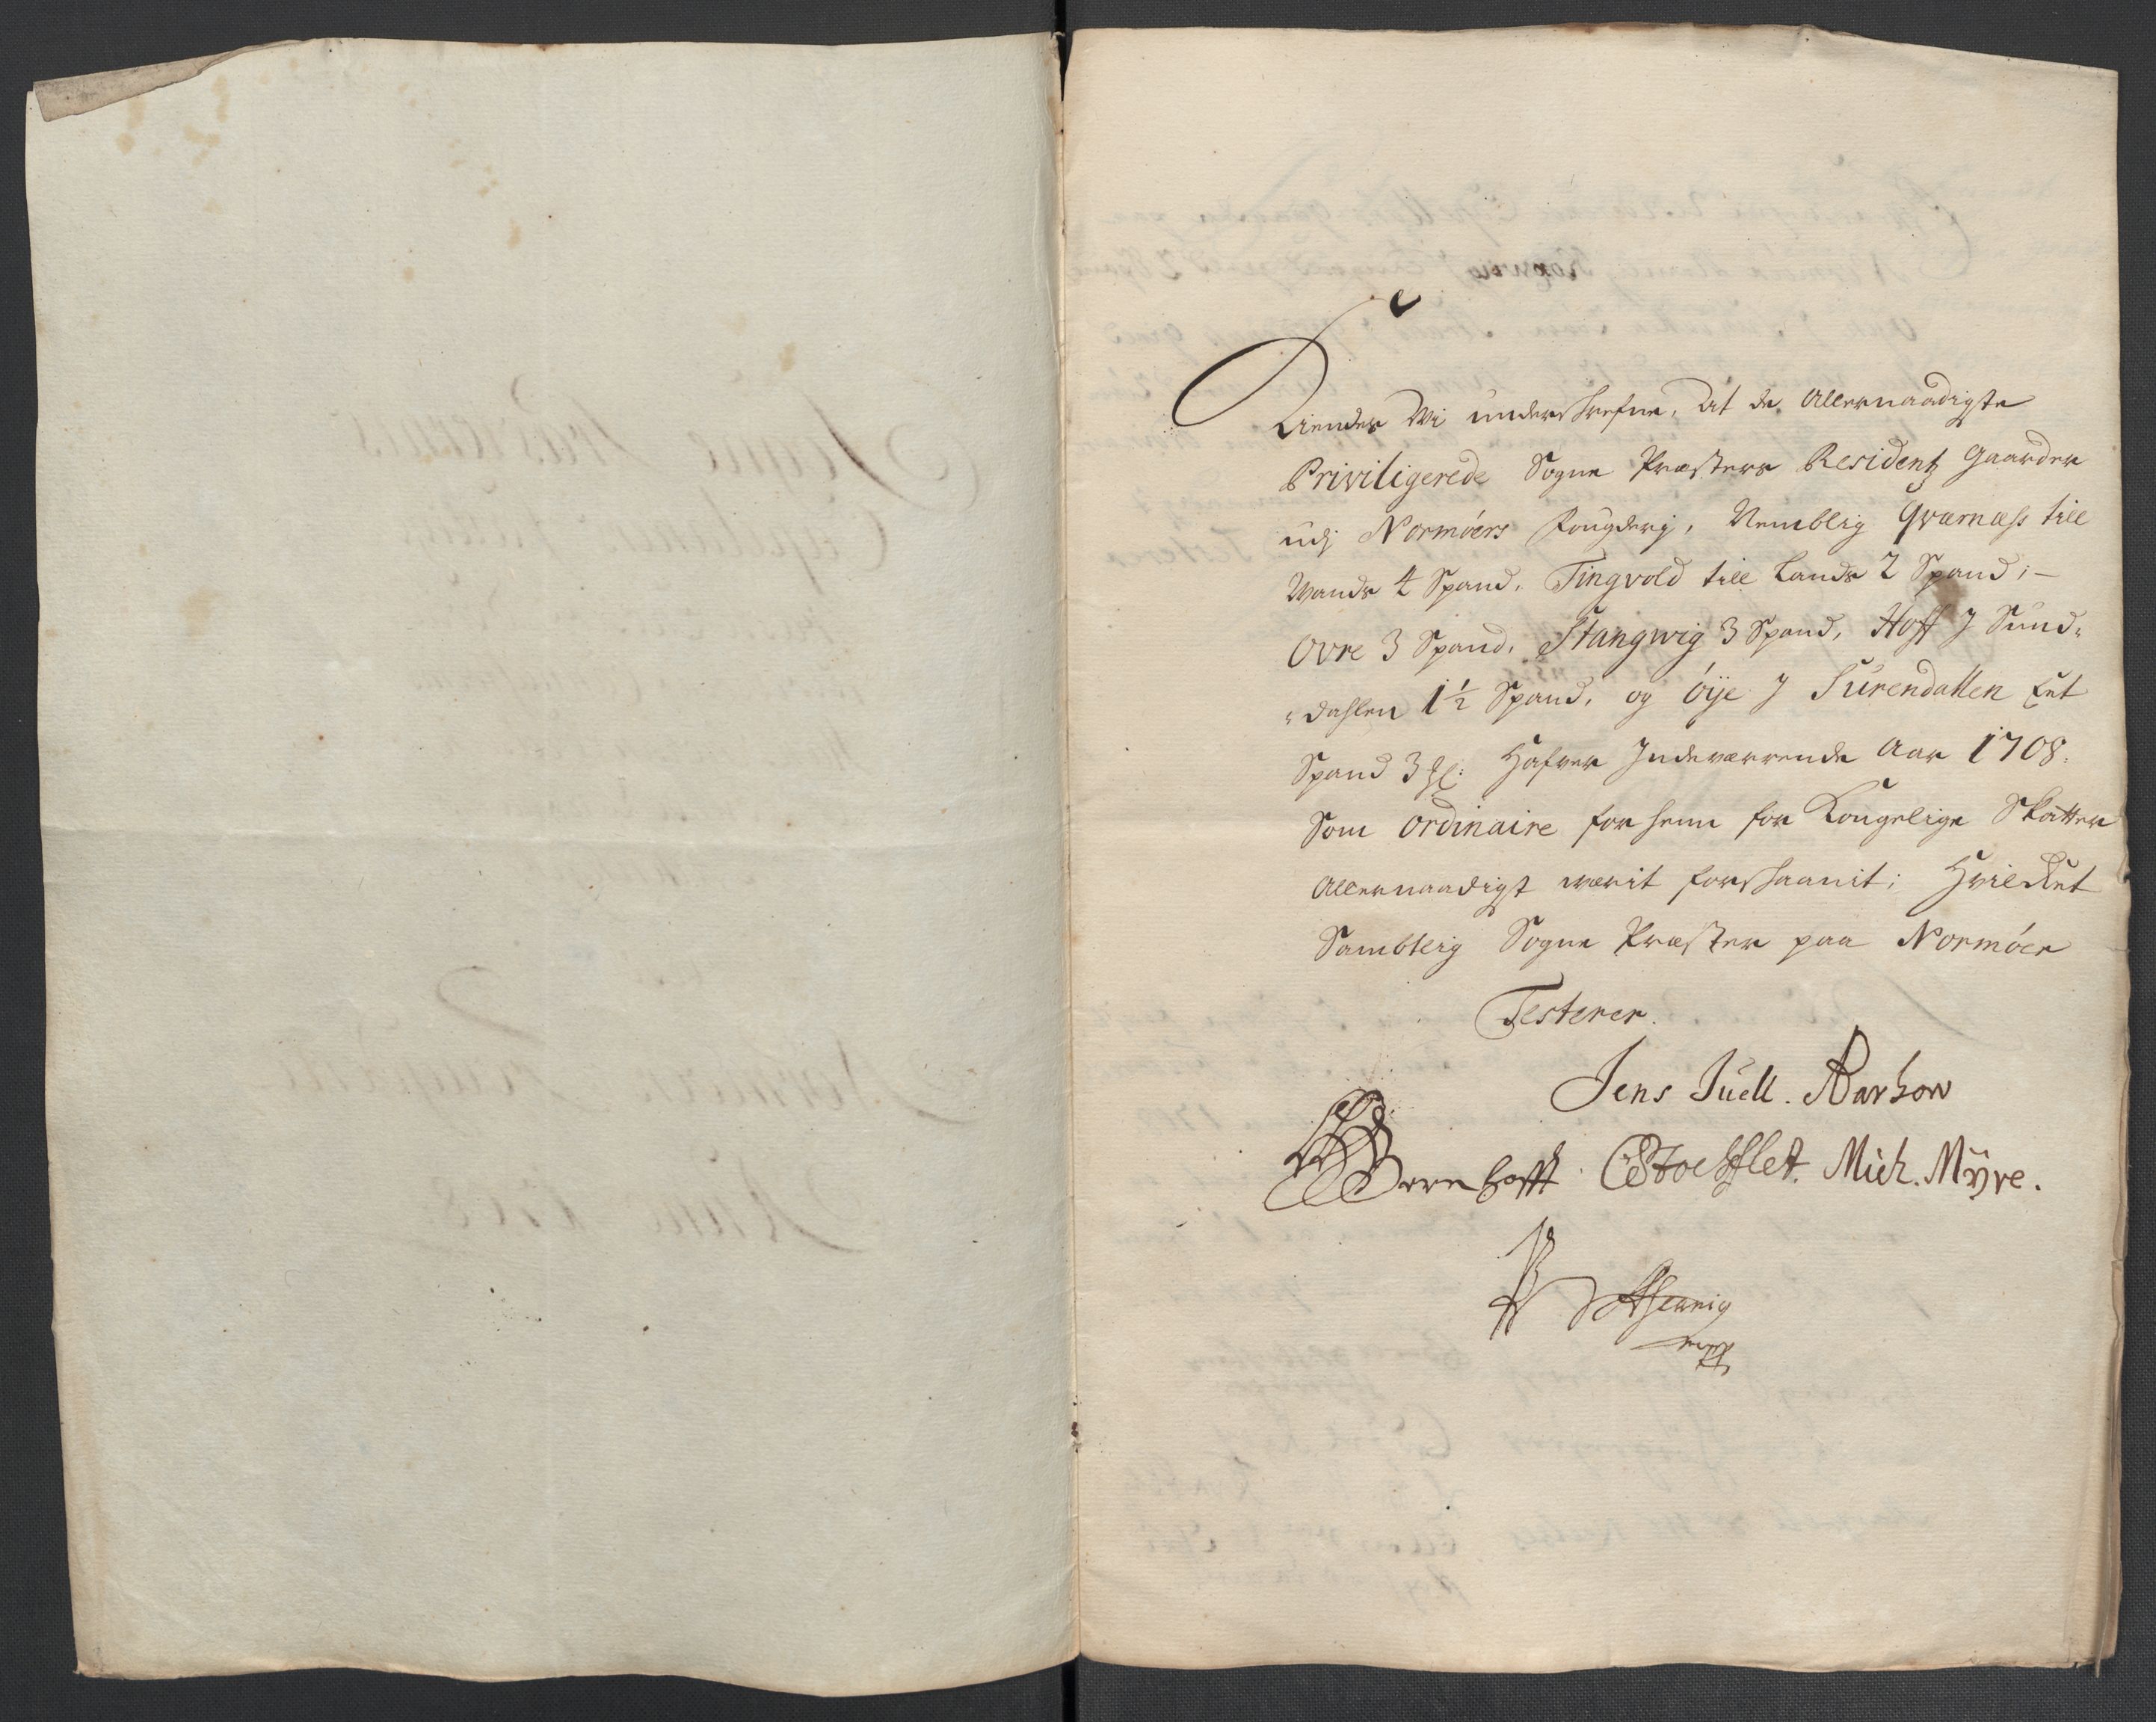 Kiendes Wi underskrefne, At de Allernaadigste
Priviligerede Sogne Præsters Residentz gaarder
udj Normóers Fougderj, Nemblig Qværnæss till
Wands 4 Spand, Tingvold till Lands 2 Spand; -
Ovre 3 Spand, Stangwig 3 Spand, Hoff J Sund„
„dahlen 1½ Spand, og óÿe J Surendallen Eet
Spand 3 Hafver Indeværende Aar 1708.
Som ordinaire forhenn for Kongelige Skatter
Allernaadigst værit forskaanit; Hvilcket
Samblig Sogne Præster paa Normóer
Testerer.
Jens Juell.
Mich. Mÿre.